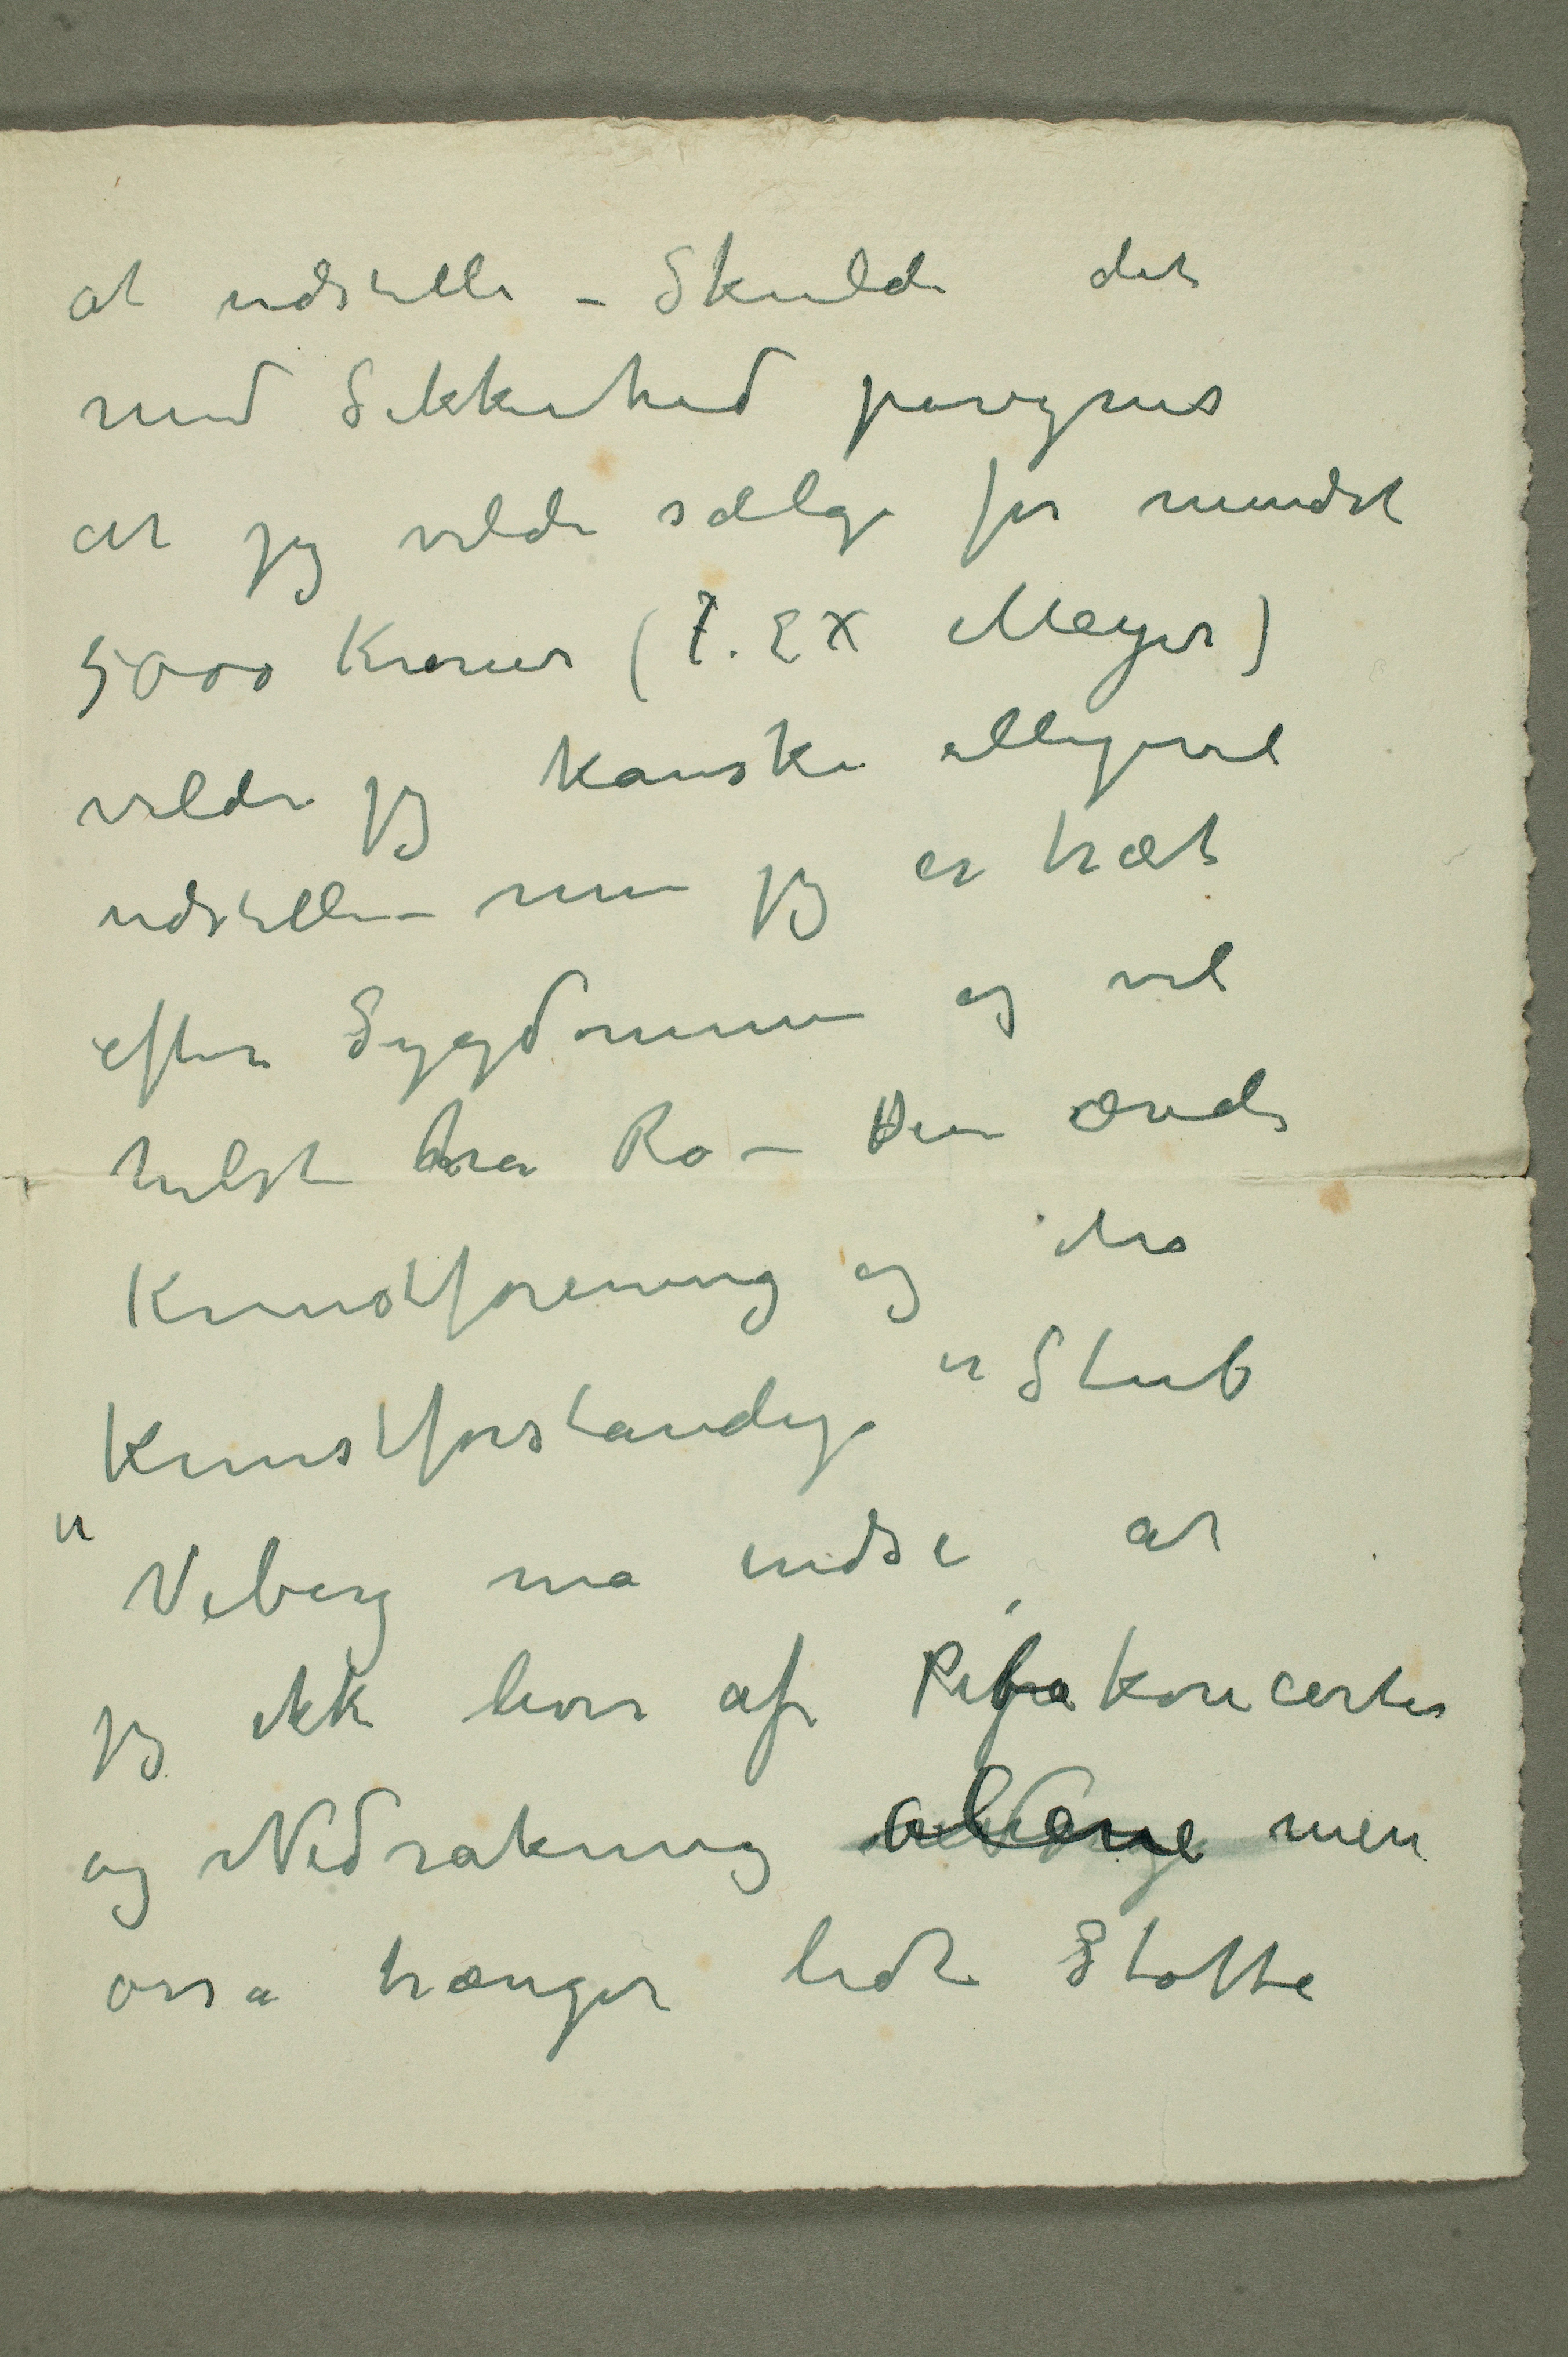 at udstille – Skulde det
med Sikkerhed pavgnes
at jeg vilde sælge for mindst
5000 Kroner (T. EX Meyer)
vilde jeg kanske alligevel
udstille – men jeg er træt
efter Sygdommen og vil
helst ha Ro – Den ærede
Kunstforening og dens
Kunstforstandige "Stub
" Viberg må indse at
jeg ikke lever af Pibekoncerter
og Nedrakning alene men
også trænger lidt Støtte